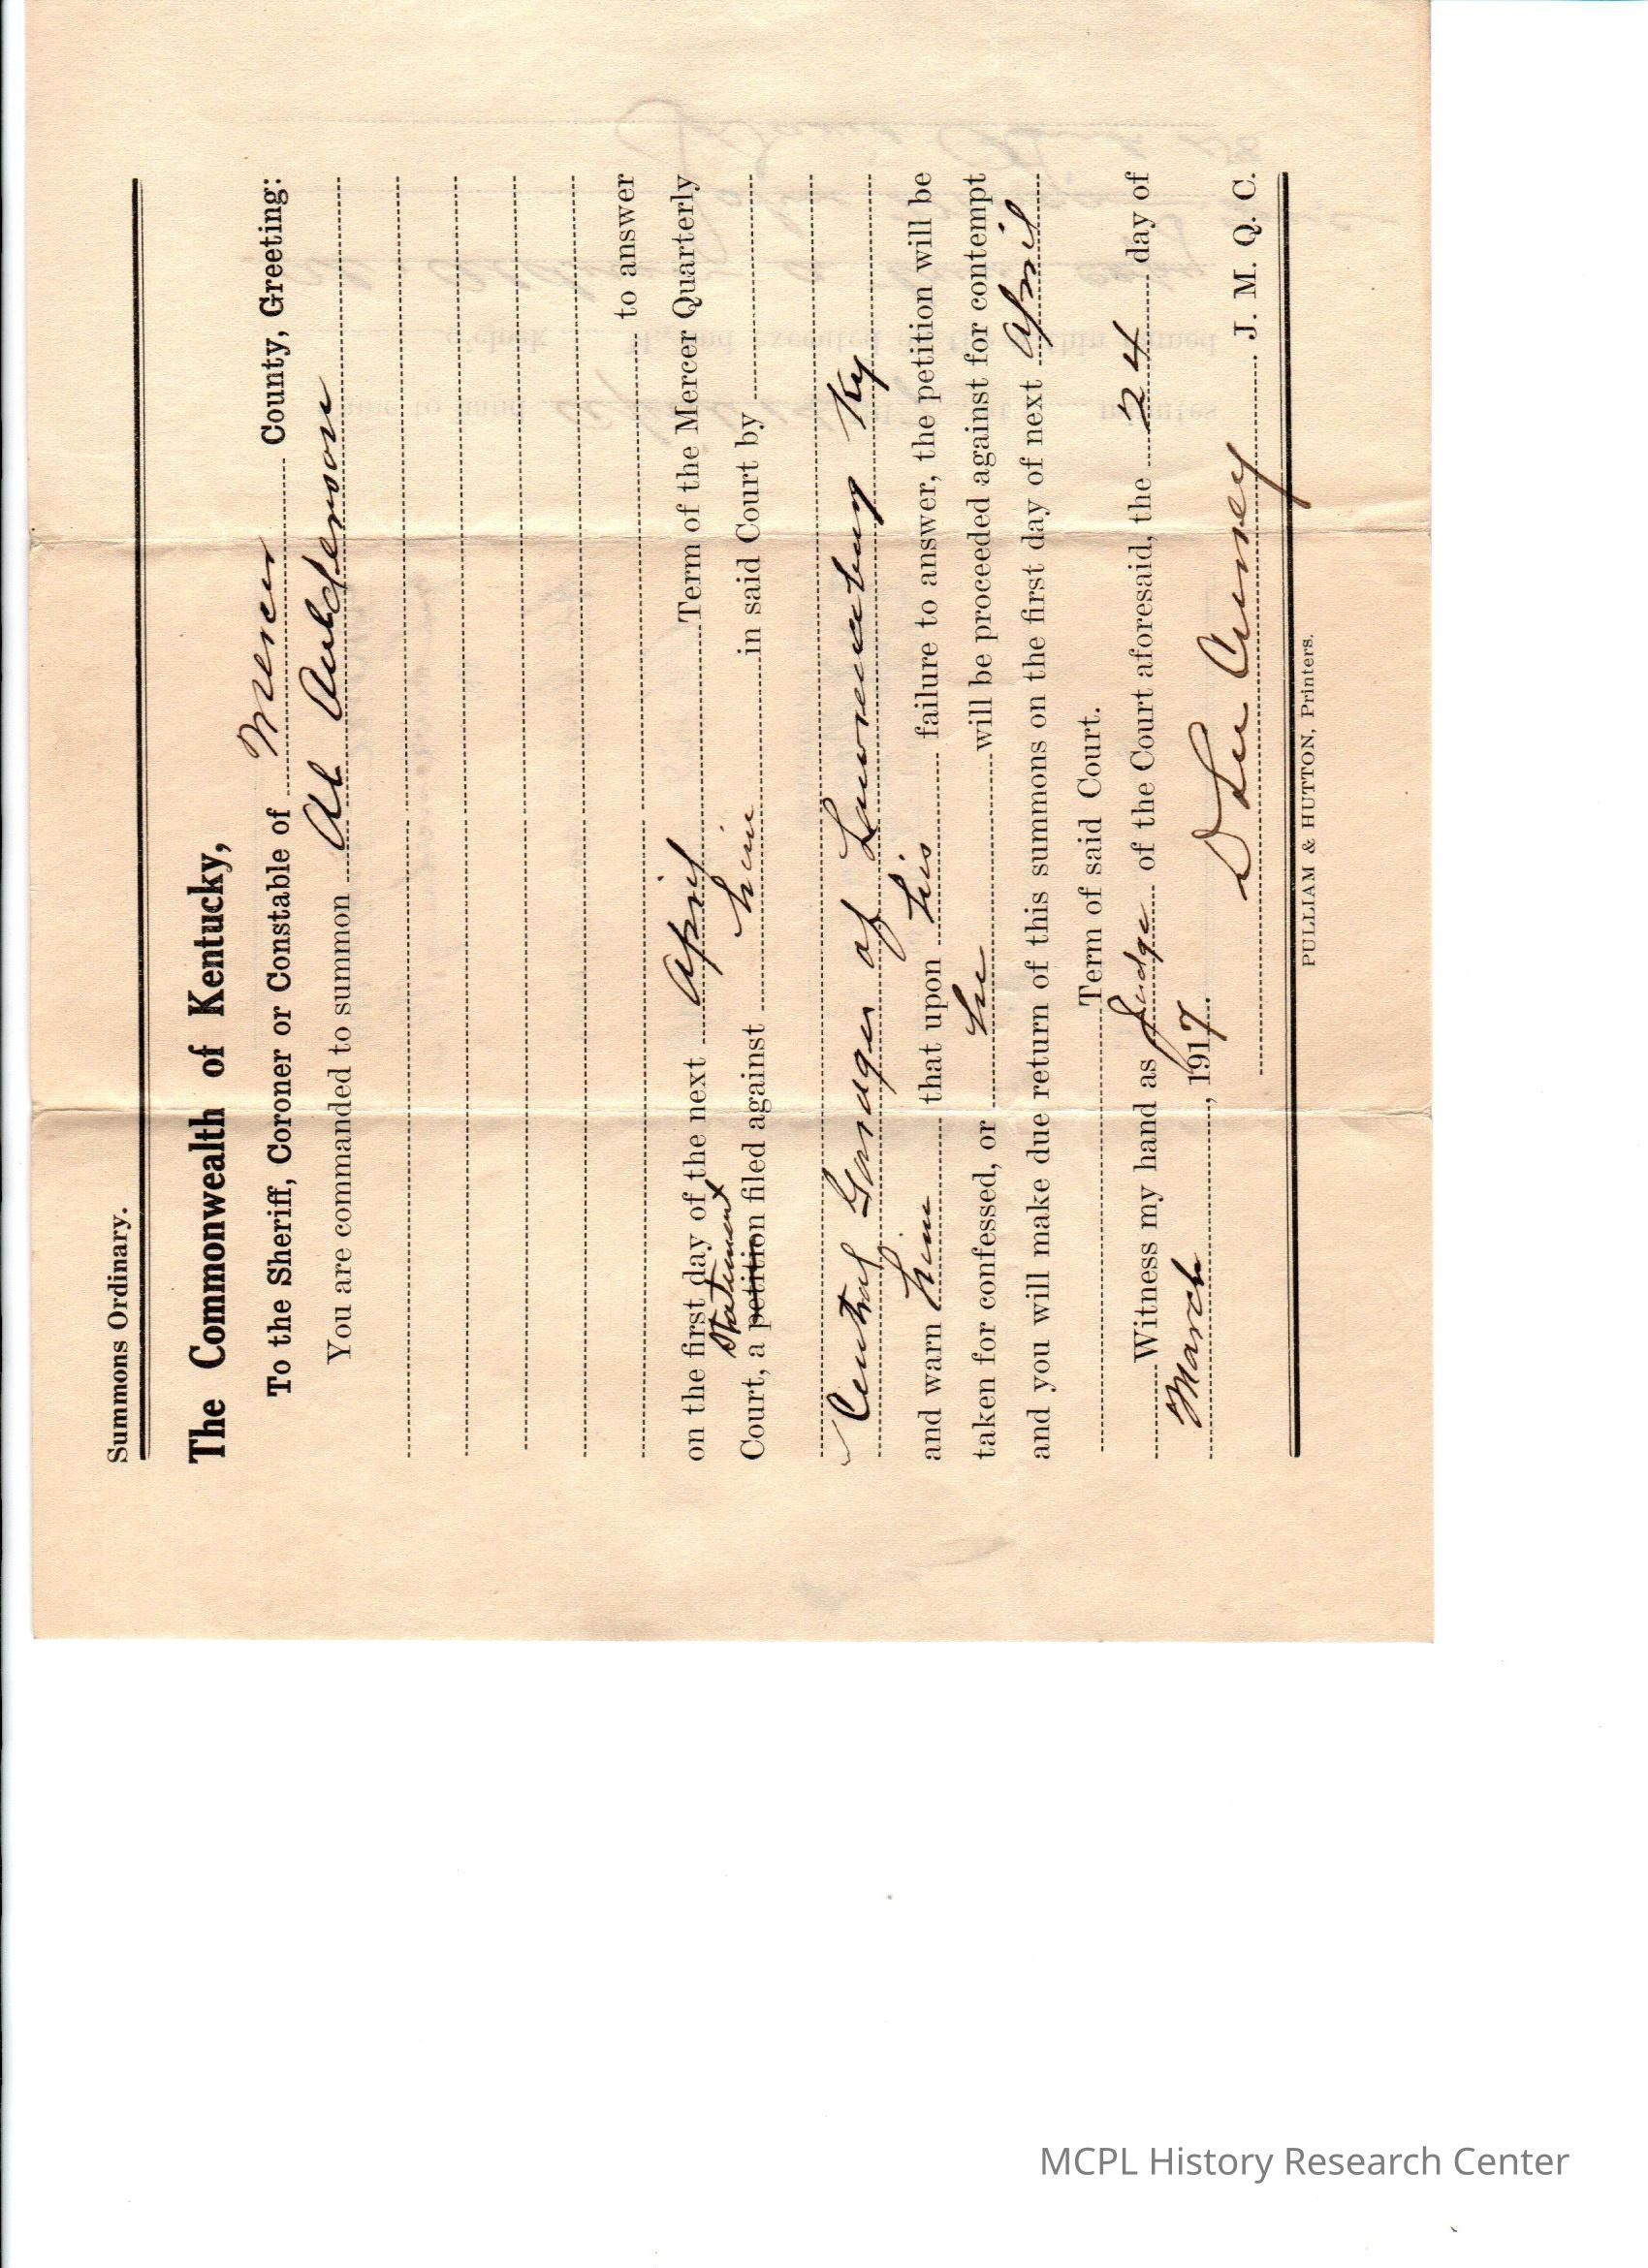 Summons Ordinary.
The Commonwealth of Kentucky,
To the Sheriff, Coroner or Constable of Mercer County, Greeting:
You are commanded to summon Al Anderson
to answer
on the first day of the next April Term of the Mercer Quarterly
Statement
Court, a petition filed against him in said Court by
Central Garage of Lawrenceburg Ky
and warn him that upon his failure to answer, the petition will be
taken for confessed, or he will be proceeded against for contempt
and you will make due return of this summons on the first day of next April
Term of said Court.
Witness my hand as Judge of the Court aforesaid, the 24 day of
March, 1917.
J. M. Q. C.
PULLIAM & HUTTON, Printers.
MCPL History Research Center